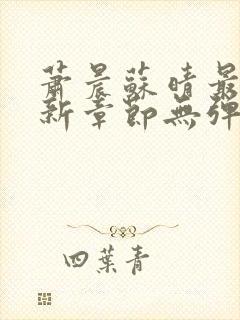 蕭晨蘇晴最
新章節無彈
四葉青